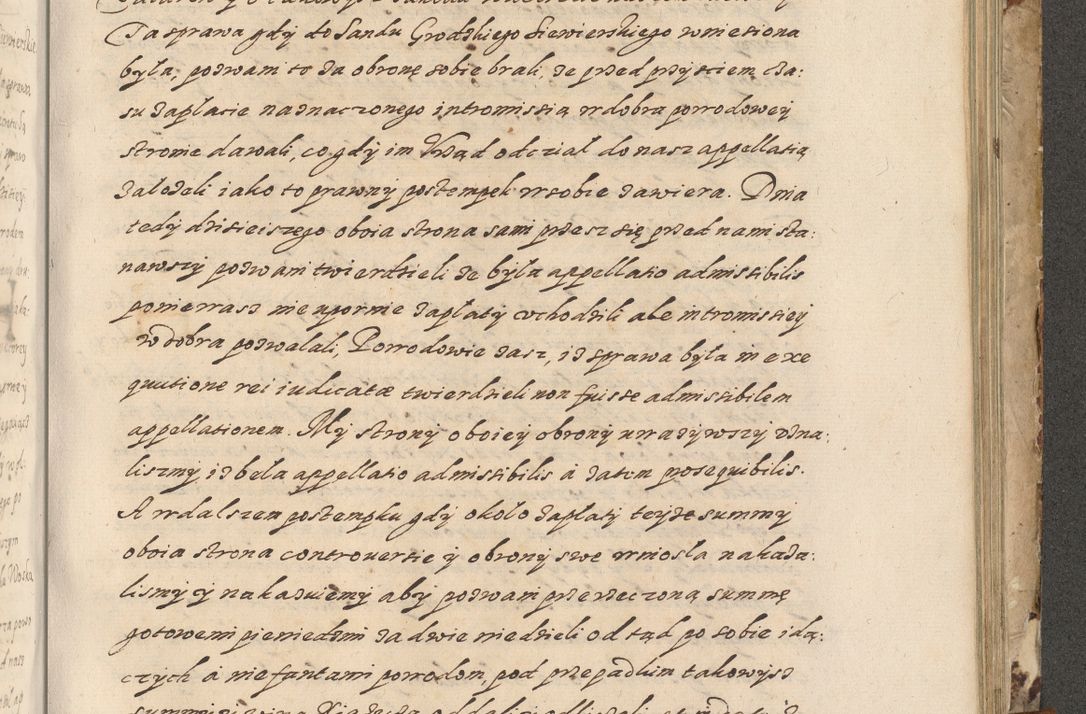 Ta sprawa gdy do Sandu Grodzkiego Siewierskiego wniesiona
była, pozwani to za obronę sobie brali, że przed przyściem cza:
su zaplacie naznaczonego intromissią w dobra powodowey
stronie dawali, co gdy im Vrząd odcział do nasz appellatią
założeli iako to prawny postempek w sobie zawiera. Dnia
tedy dzisieiszego oboia strona sami przesz się przed nami sta:
nawszy pozwani twierdzieli że była appellatio admissibilis
poniewasz nie upornie zapłaty wchodzili ale intromissiey
w dobra pozwalali, Powodowie zasz, iż sprawa była in exe
quutione rei iudicatæ twierdzieli non fuisse admissibilem
appellationem. My strony oboiey obrony uwazywszy uzna:
liszmy iż bela appellatio admissibilis á zatem prosequibilis.
A w dalszem postempku gdy około zapłaty teyże summy
oboia strona controversie y obrony swe wniosła nakaza:
lismy y nakazuiemy aby pozwani przerzeczoną summę
gotowemi pieniedzmi za dwie niedzieli od tąd po sobie idą:
czych á nie fantami powodom, pod przepadkiem takowysz